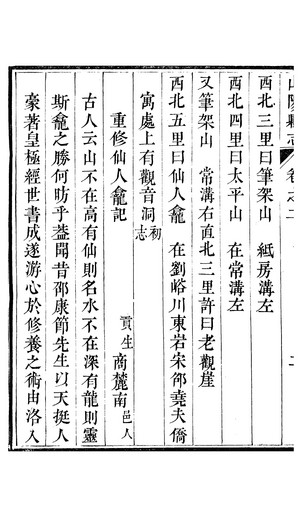 山陽縣志 卷之二 二
西北三里曰筆架山 紙房溝左
西北四里曰太平山 在常溝左
又筆架山 常溝右直北三里許曰老觀崖
西北五里曰仙人龕 在劉峪川東岩宋邵堯夫僑
寓處上有觀音洞 初志
重修仙人龕記
貢生 商麓南 邑人
古人云山不在高有仙則名水不在深有龍則靈
斯龕之勝何昉乎葢聞昔邵康節先生以天挺人
豪著皇極經世書成遂游心於修養之術由洛入